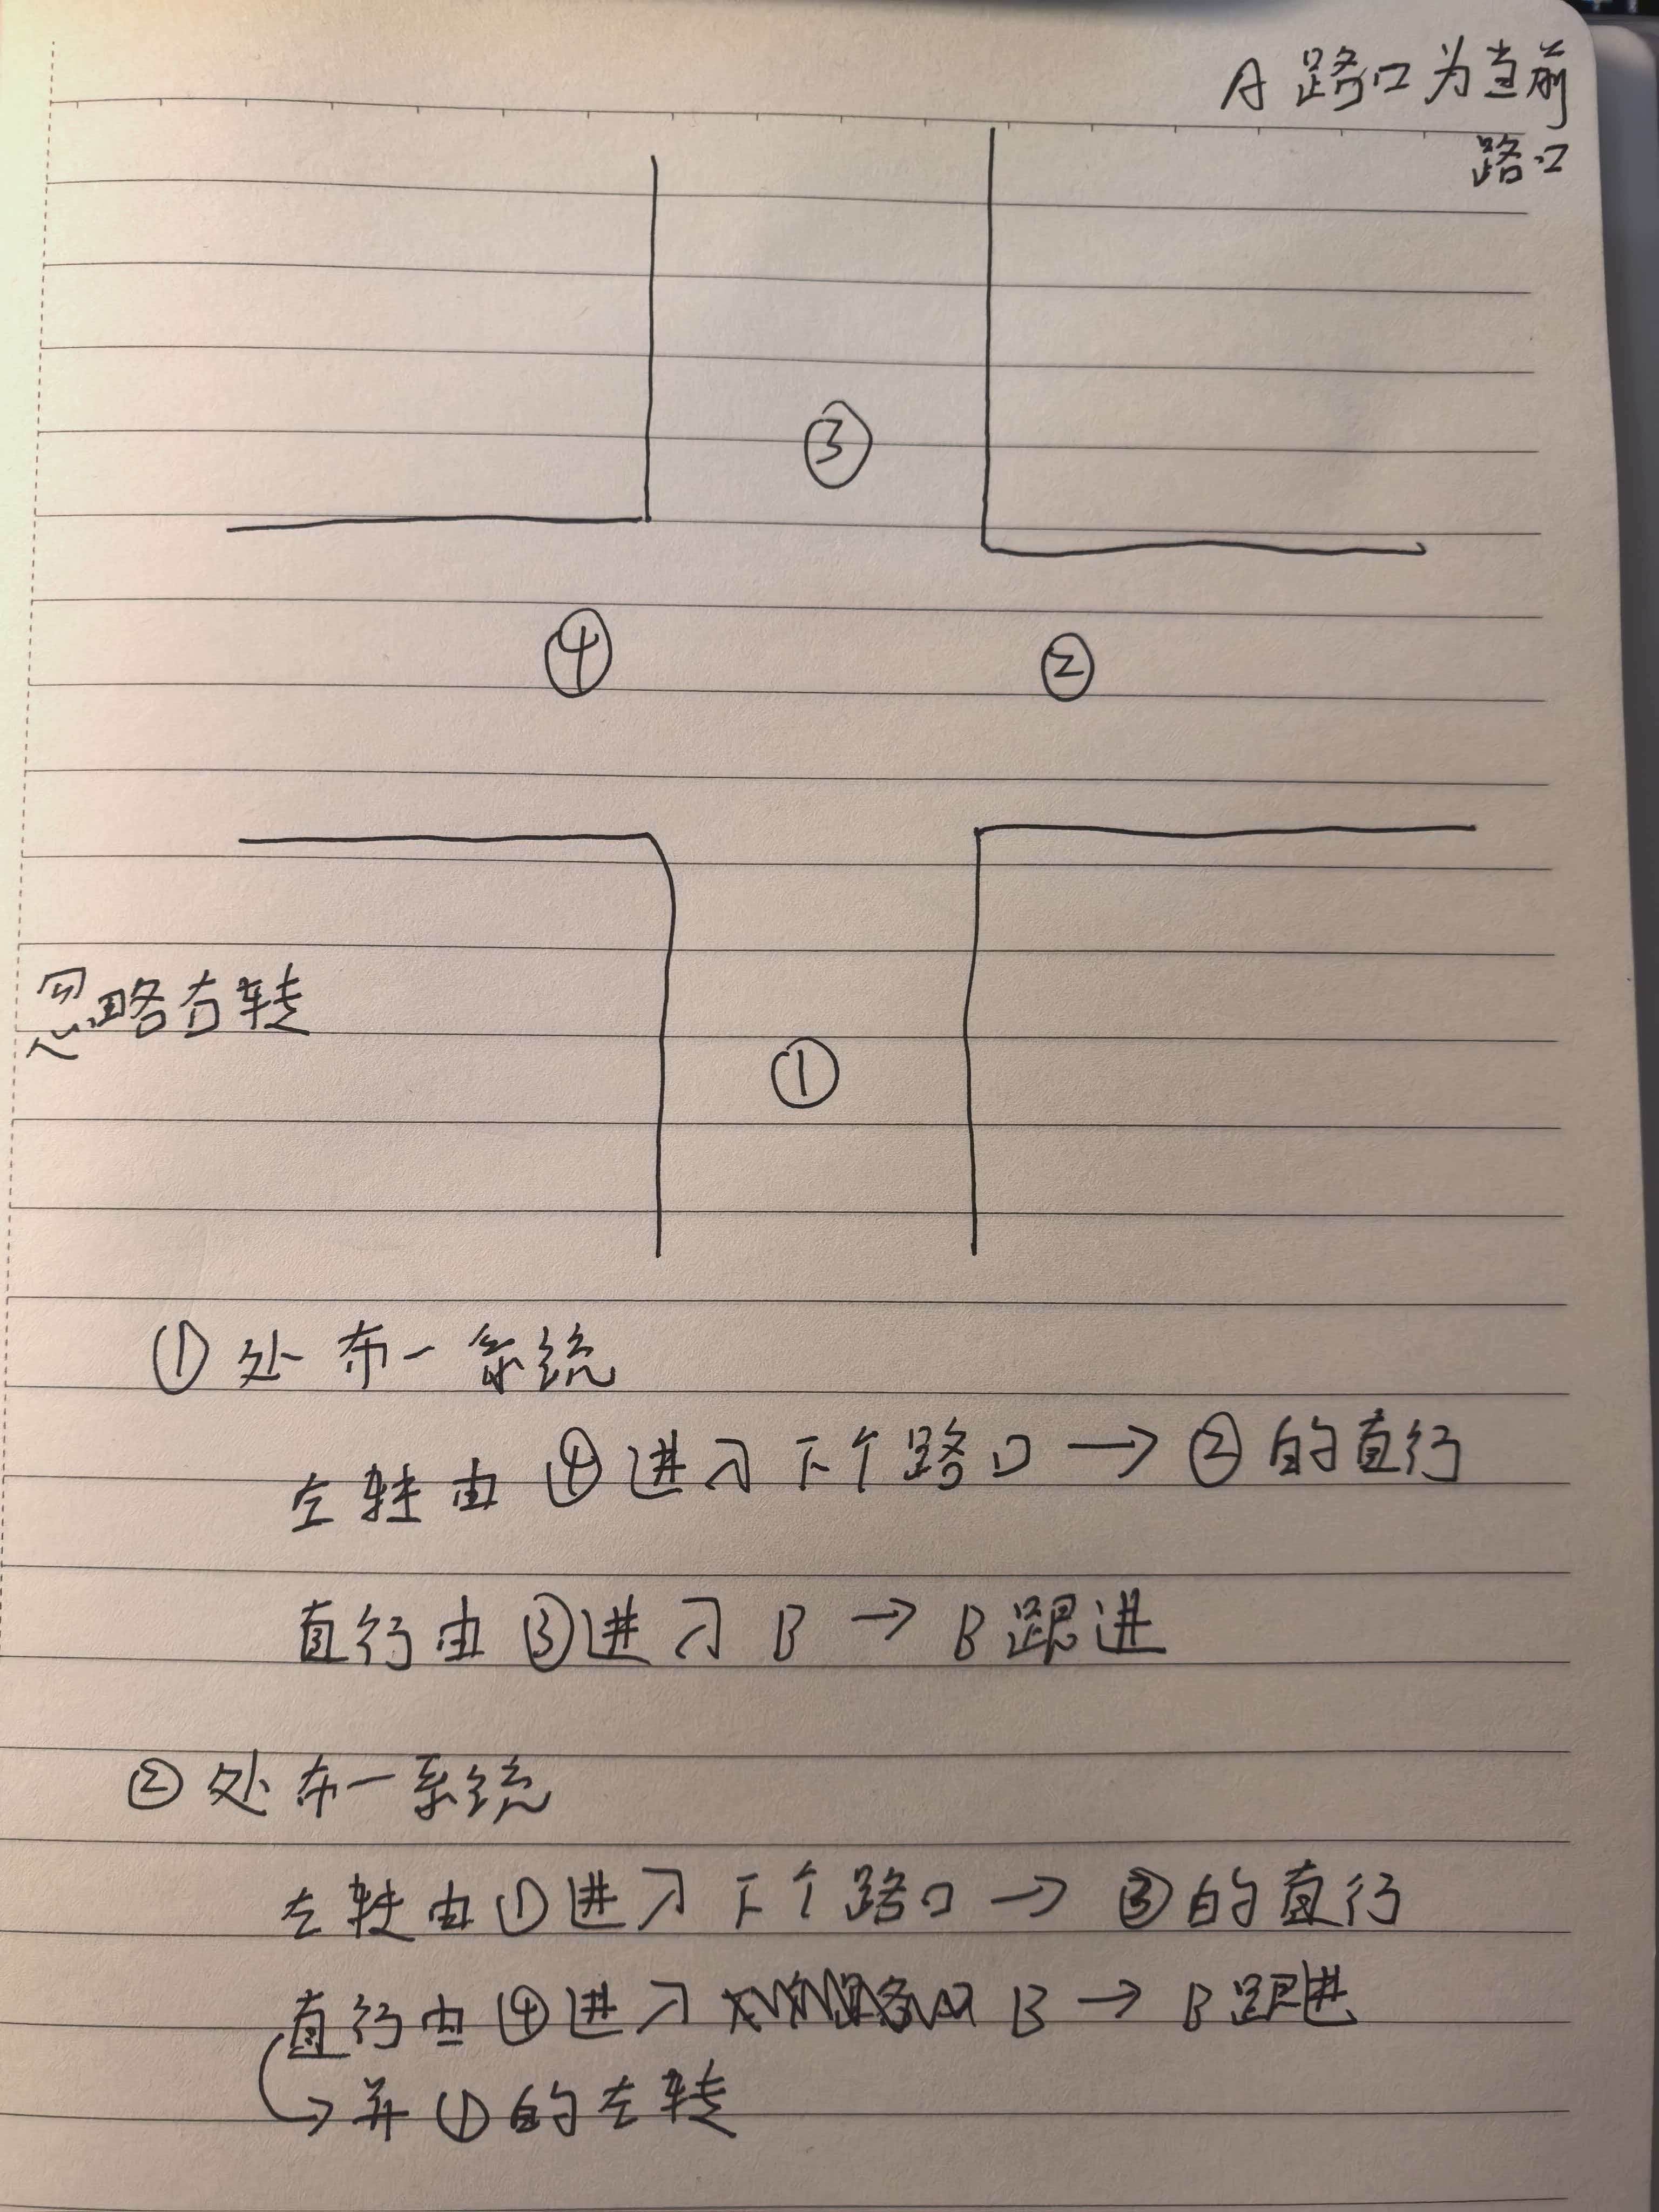 A 路口为当前
路口
③
④
②
忽略右转
①
①处布一系统
左转由④进入下个路口→②的直行
直行由③进入B→B跟进
②处布一系统
左转由①进入下个路口→③的直行
直行由④进入 B→B跟进
→并①的左转